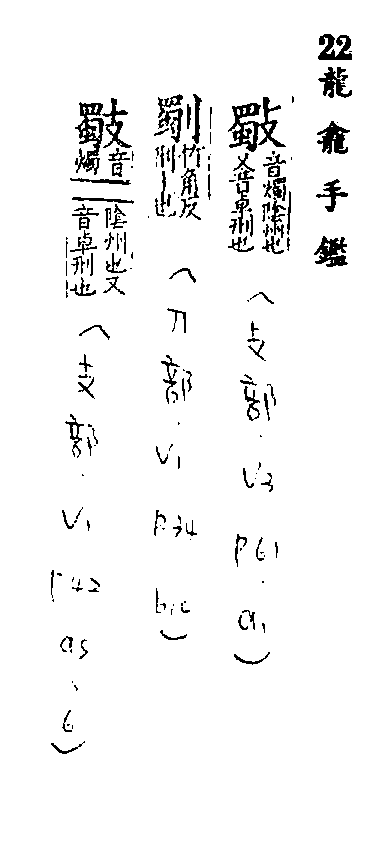 22 龍龕手鑑
㪦 音燭陰州也又音卓刑也（攴部．V3 P61．a1）
㓸 竹角反刑也（刀部．V1 P34 b10）
音燭陰州也又音卓刑也（支部．V1 P42 a5、6）